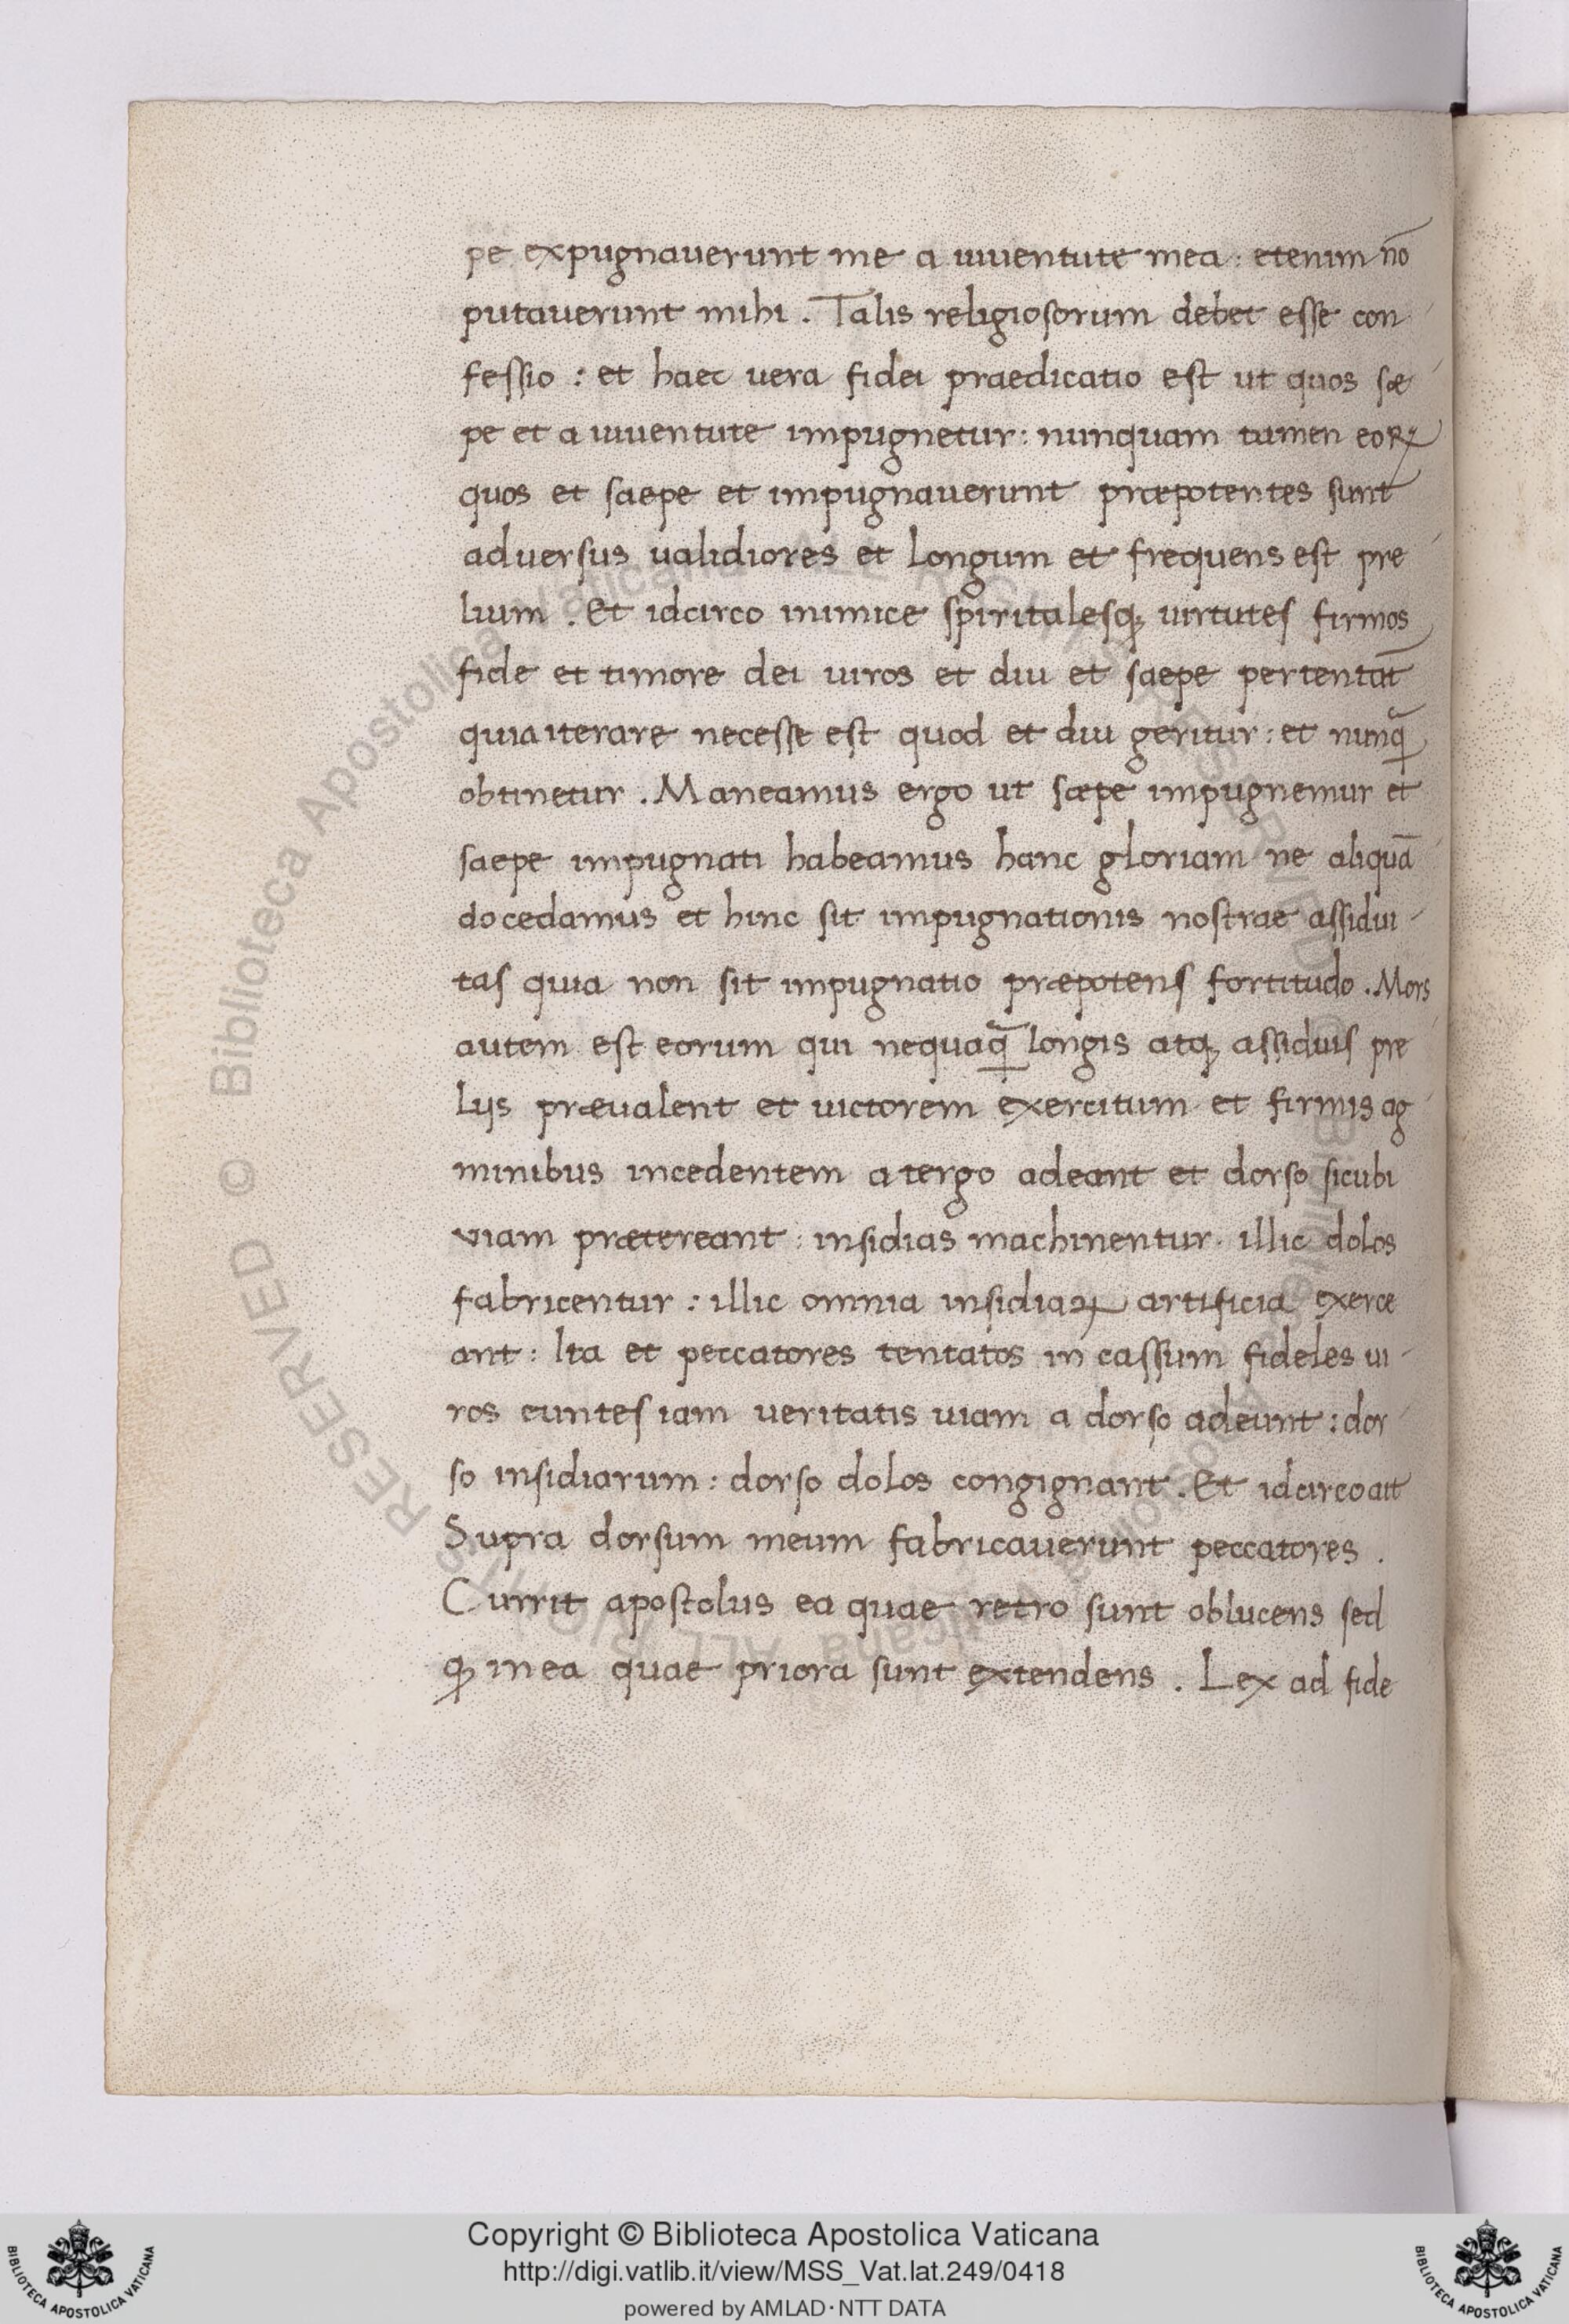 pe expugnauerunt me a iuuentute mea : etenim nō
putauerunt mihi . Talis religiosorum debet esse con
fessio : et haec vera fidei praedicatio est ut quos sæ
pe et a iuuentute impugnetur : nunquam tamen eoꝝ
quos et saepe et impugnauerunt præpotentes sunt
aduersus ualidiores et longum et frequens est pre
lium . Et idcirco inimice spiritalesqꝫ uirtutes firmos
fide et timore dei uiros et diu et saepe pertentāt
quia iterare necesse est quod et diu geritur : et nunꝙ̃
obtinetur . Maneamus ergo ut sæpe impugnemur et
saepe impugnati habeamus hanc gloriam ne aliquā
do cedamus et hinc sit impugnationis nostrae assidui-
tas quia non sit impugnatio præpotens fortitudo . Mors
autem est eorum qui nequaꝙ̃ longis atqꝫ assiduis pre
lijs præualent et uictorem exercitum et firmis ag
minibus incedentem a tergo adeant et dorso sicubi
viam prætereant : insidias machinentur . illic dolos
fabricentur : illic omnia insidiaꝝ artificia exerce
ant : Ita et peccatores tentatos in cassum fideles ui-
ros euntes iam veritatis uiam a dorso adeunt : dor
so insidiarum : dorso dolos congignant . Et idcirco ait
Supra dorsum meum fabricauerunt peccatores .
Currit apostolus ea quae retro sunt oblucens sed
qꝫ in ea quae priora sunt extendens . Lex ad fide
Copyright © Biblioteca Apostolica Vaticana
http://digi.vatlib.it/view/MSS_Vat.lat.249/0418
powered by AMLAD·NTT DATA
BIBLIOTECA APOSTOLICA VATICANA
BIBLIOTECA APOSTOLICA VATICANA